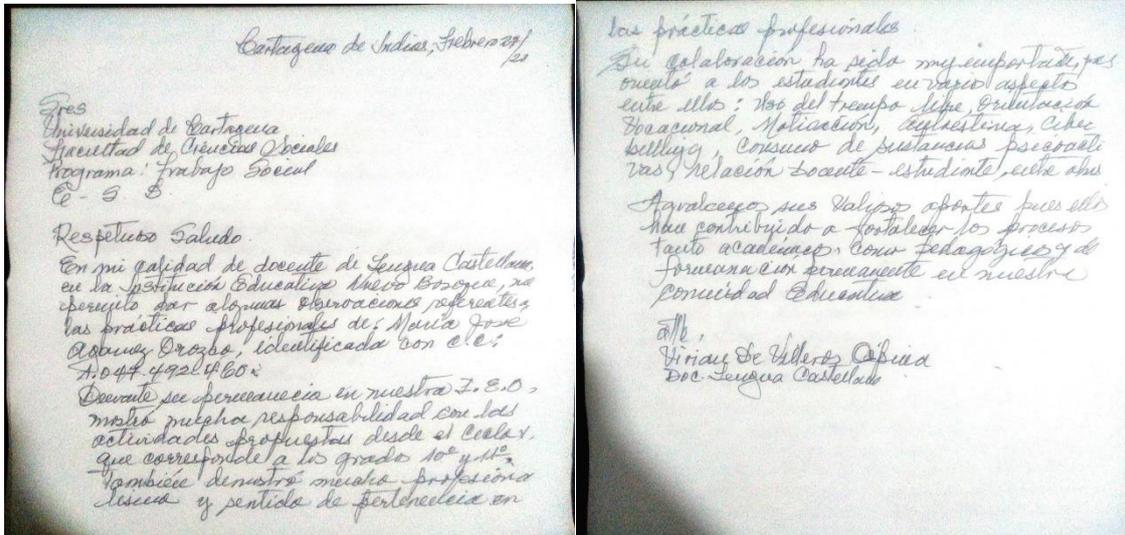 Cartagena de Indias, Febrero 27/
/20
Sres
Universidad de Cartagena
Facultad de Ciencias Sociales
Programa: Trabajo Social
E - S D.
Respetuoso Saludo.
En mi calidad de docente de Lengua Castellana,
en la Institución Educativa Nuevo Bosque, me
permito dar algunas observaciones referentes a
las prácticas profesionales de: María José
Orozco, identificada con c.c:
1.047.492.460.
Durante su permanencia en nuestra I.E.O,
mostró mucha responsabilidad con las
actividades propuestas desde el Ciclo V,
que corresponde a los grados 10º y 11º.
También demostró mucho profesiona
lismo y sentido de pertenencia en
las prácticas profesionales.
Su colaboración ha sido muy importante, pues
orientó a los estudiantes en vario aspecto
entre ellos: Uso del tiempo libre, Orientación
Vocacional, Motivación, autoestima, Ciber
bulling, Consumo de sustancias psicoacti
vas, relación Docente - estudiante, entre otros
Agradecemos sus Valiosos aportes pues ellos
han contribuido a fortalecer los procesos
tanto académicos como pedagógicos y de
formación permanente en nuestra
comunidad Educativa
Att,
Vivian De
Doc. Lengua Castellana